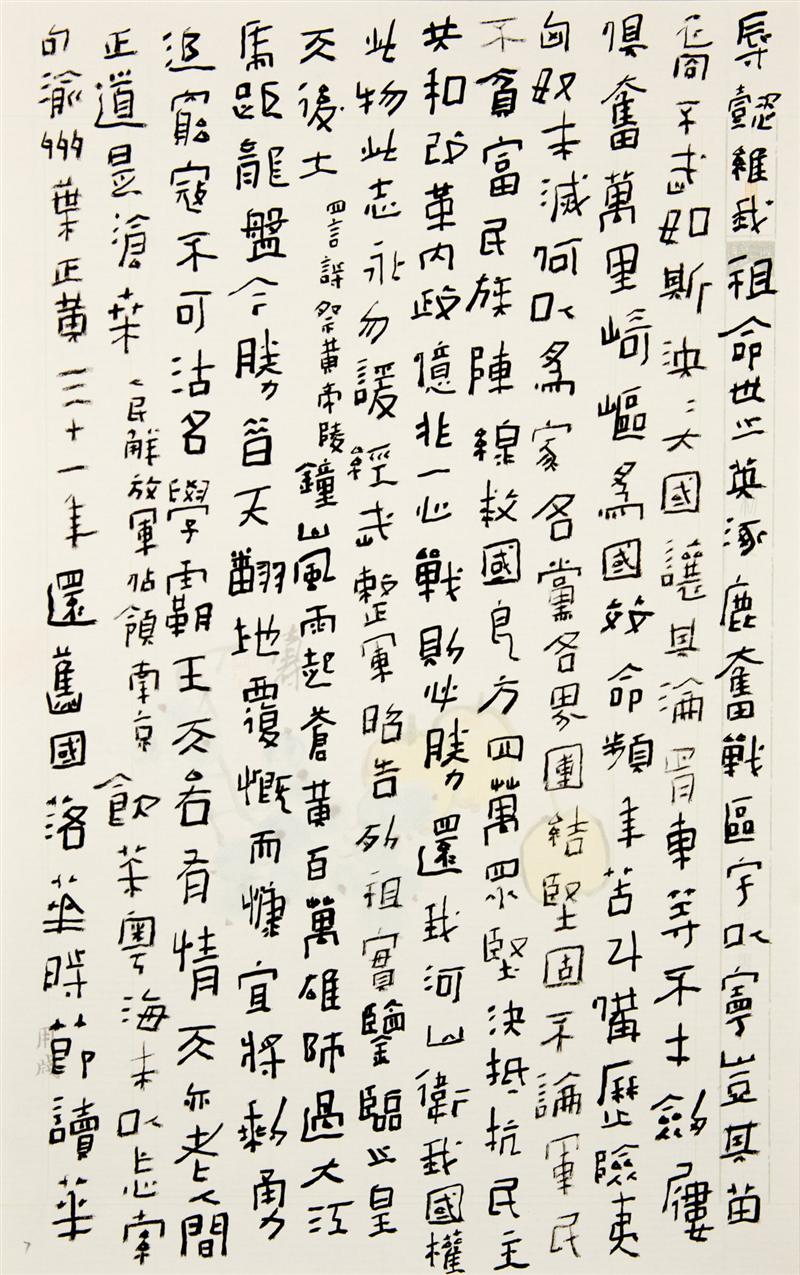 辱懿維我祖命世之英涿鹿奮戰區宇以寧豈其苗
裔不武如斯泱〻大國讓其淪胥東等不才劍屨
俱奮萬里崎嶇爲國效命頻年苦鬥備歷險夷
匈奴未滅何以爲家各黨各界團結堅固不論軍民
不貧富民族陣線救國良方四萬眾堅決抵抗民主
共和改革内政億兆一心戰則必勝還我河山衛我國權
此物此志永勿諼經武整軍昭告列祖實鑒臨之皇
天後土 四言詩祭黄帝陵 鐘山風雨起蒼黄百萬雄師過大江
虎距龍盤今勝昔天翻地覆慨而慷宜將剩勇
追窮寇不可沽名學霸王天若有情天亦老人間
正道是滄桑 人民解放軍佔領南京 飲茶粵海未以忘索
句渝州葉正黄三十一年還舊國落華時節讀華